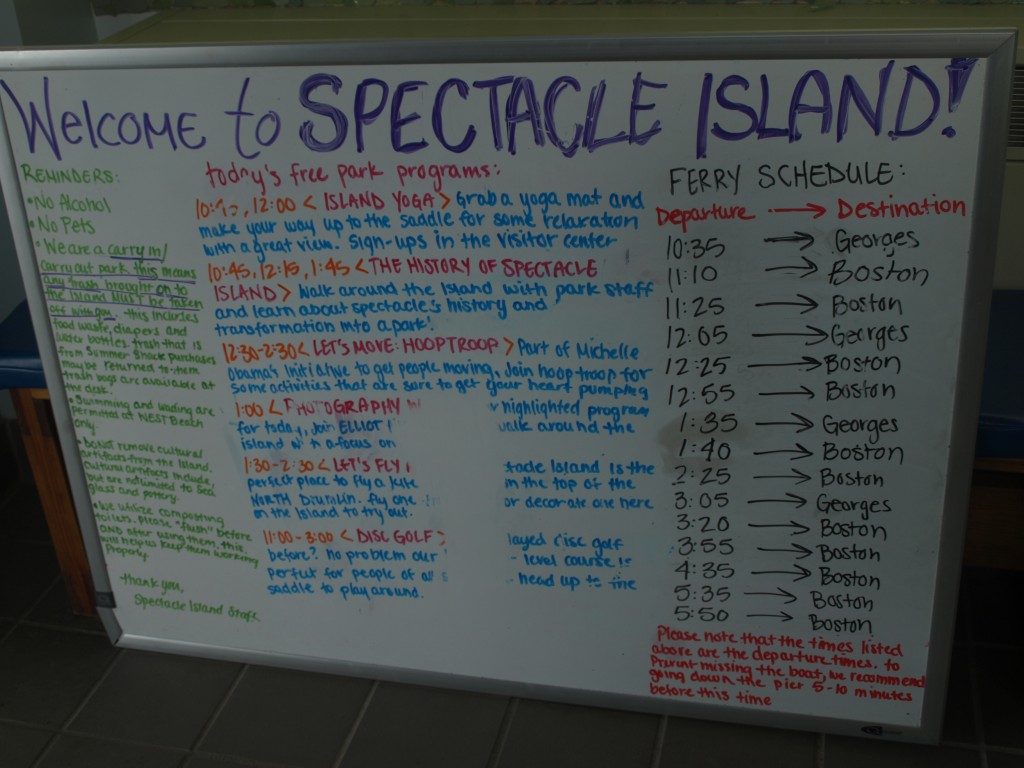 Welcome to SPECTACLE ISLAND!
REMINDERS:
•No Alcohol
•No Pets
•We are a carry in/
carry out park, this means
any trash brought on to
the island MUST be taken
off with you. -this includes
food waste, diapers and
water bottles. trash that is
from Summer Shack purchases
may be returned to them.
trash bags are available at
the desk.
•Swimming and wading are
permitted at WEST Beach
only.
•Do not remove cultural
artifacts from the island.
cultural artifacts include,
but are not limited to Sea
glass and pottery.
•We utilize composting
toilets. Please "flush" before
AND after using them, this
will help us keep them working
properly.
-thank you,
Spectacle Island Staff
today's free park programs:
12:00 < ISLAND YOGA > Grab a yoga mat and
make your way up to the saddle for some relaxation
with a great view. Sign-ups in the visitor center
10:45, 12:15, 1:45 < THE HISTORY OF SPECTACLE
ISLAND > Walk around the Island with park staff
and learn about spectacle's history and
transformation into a park!
12:30-2:30 < LET'S MOVE: HOOPTROOP > Part of Michelle
Obama's initiative to get people moving. Join hoop troop for
some activities that are sure to get your heart pumping
1:00 < PHOTOGRAPHY highlighted program
for today, join ELLIOT walk around the
island with a focus on
1:30-2:30 < LET'S FLY Island is the
perfect place to fly a kite in the top of the
NORTH DRUMLIN. fly one or decorate one here
on the Island to try out.
11:00 - 3:00 < DISC GOLF disc golf
before? no problem our level course is
perfect for people of head up to the
saddle to play around.
FERRY SCHEDULE:
Departure → Destination
10:35 → Georges
11:10 → Boston
11:25 → Boston
12:05 → Georges
12:25 → Boston
12:55 → Boston
1:35 → Georges
1:40 → Boston
2:25 → Boston
3:05 → Georges
3:20 → Boston
3:55 → Boston
4:35 → Boston
5:35 → Boston
5:50 → Boston
Please note that the times listed
above are the departure times. to
prevent missing the boat, we recommend
going down the pier 5-10 minutes
before this time